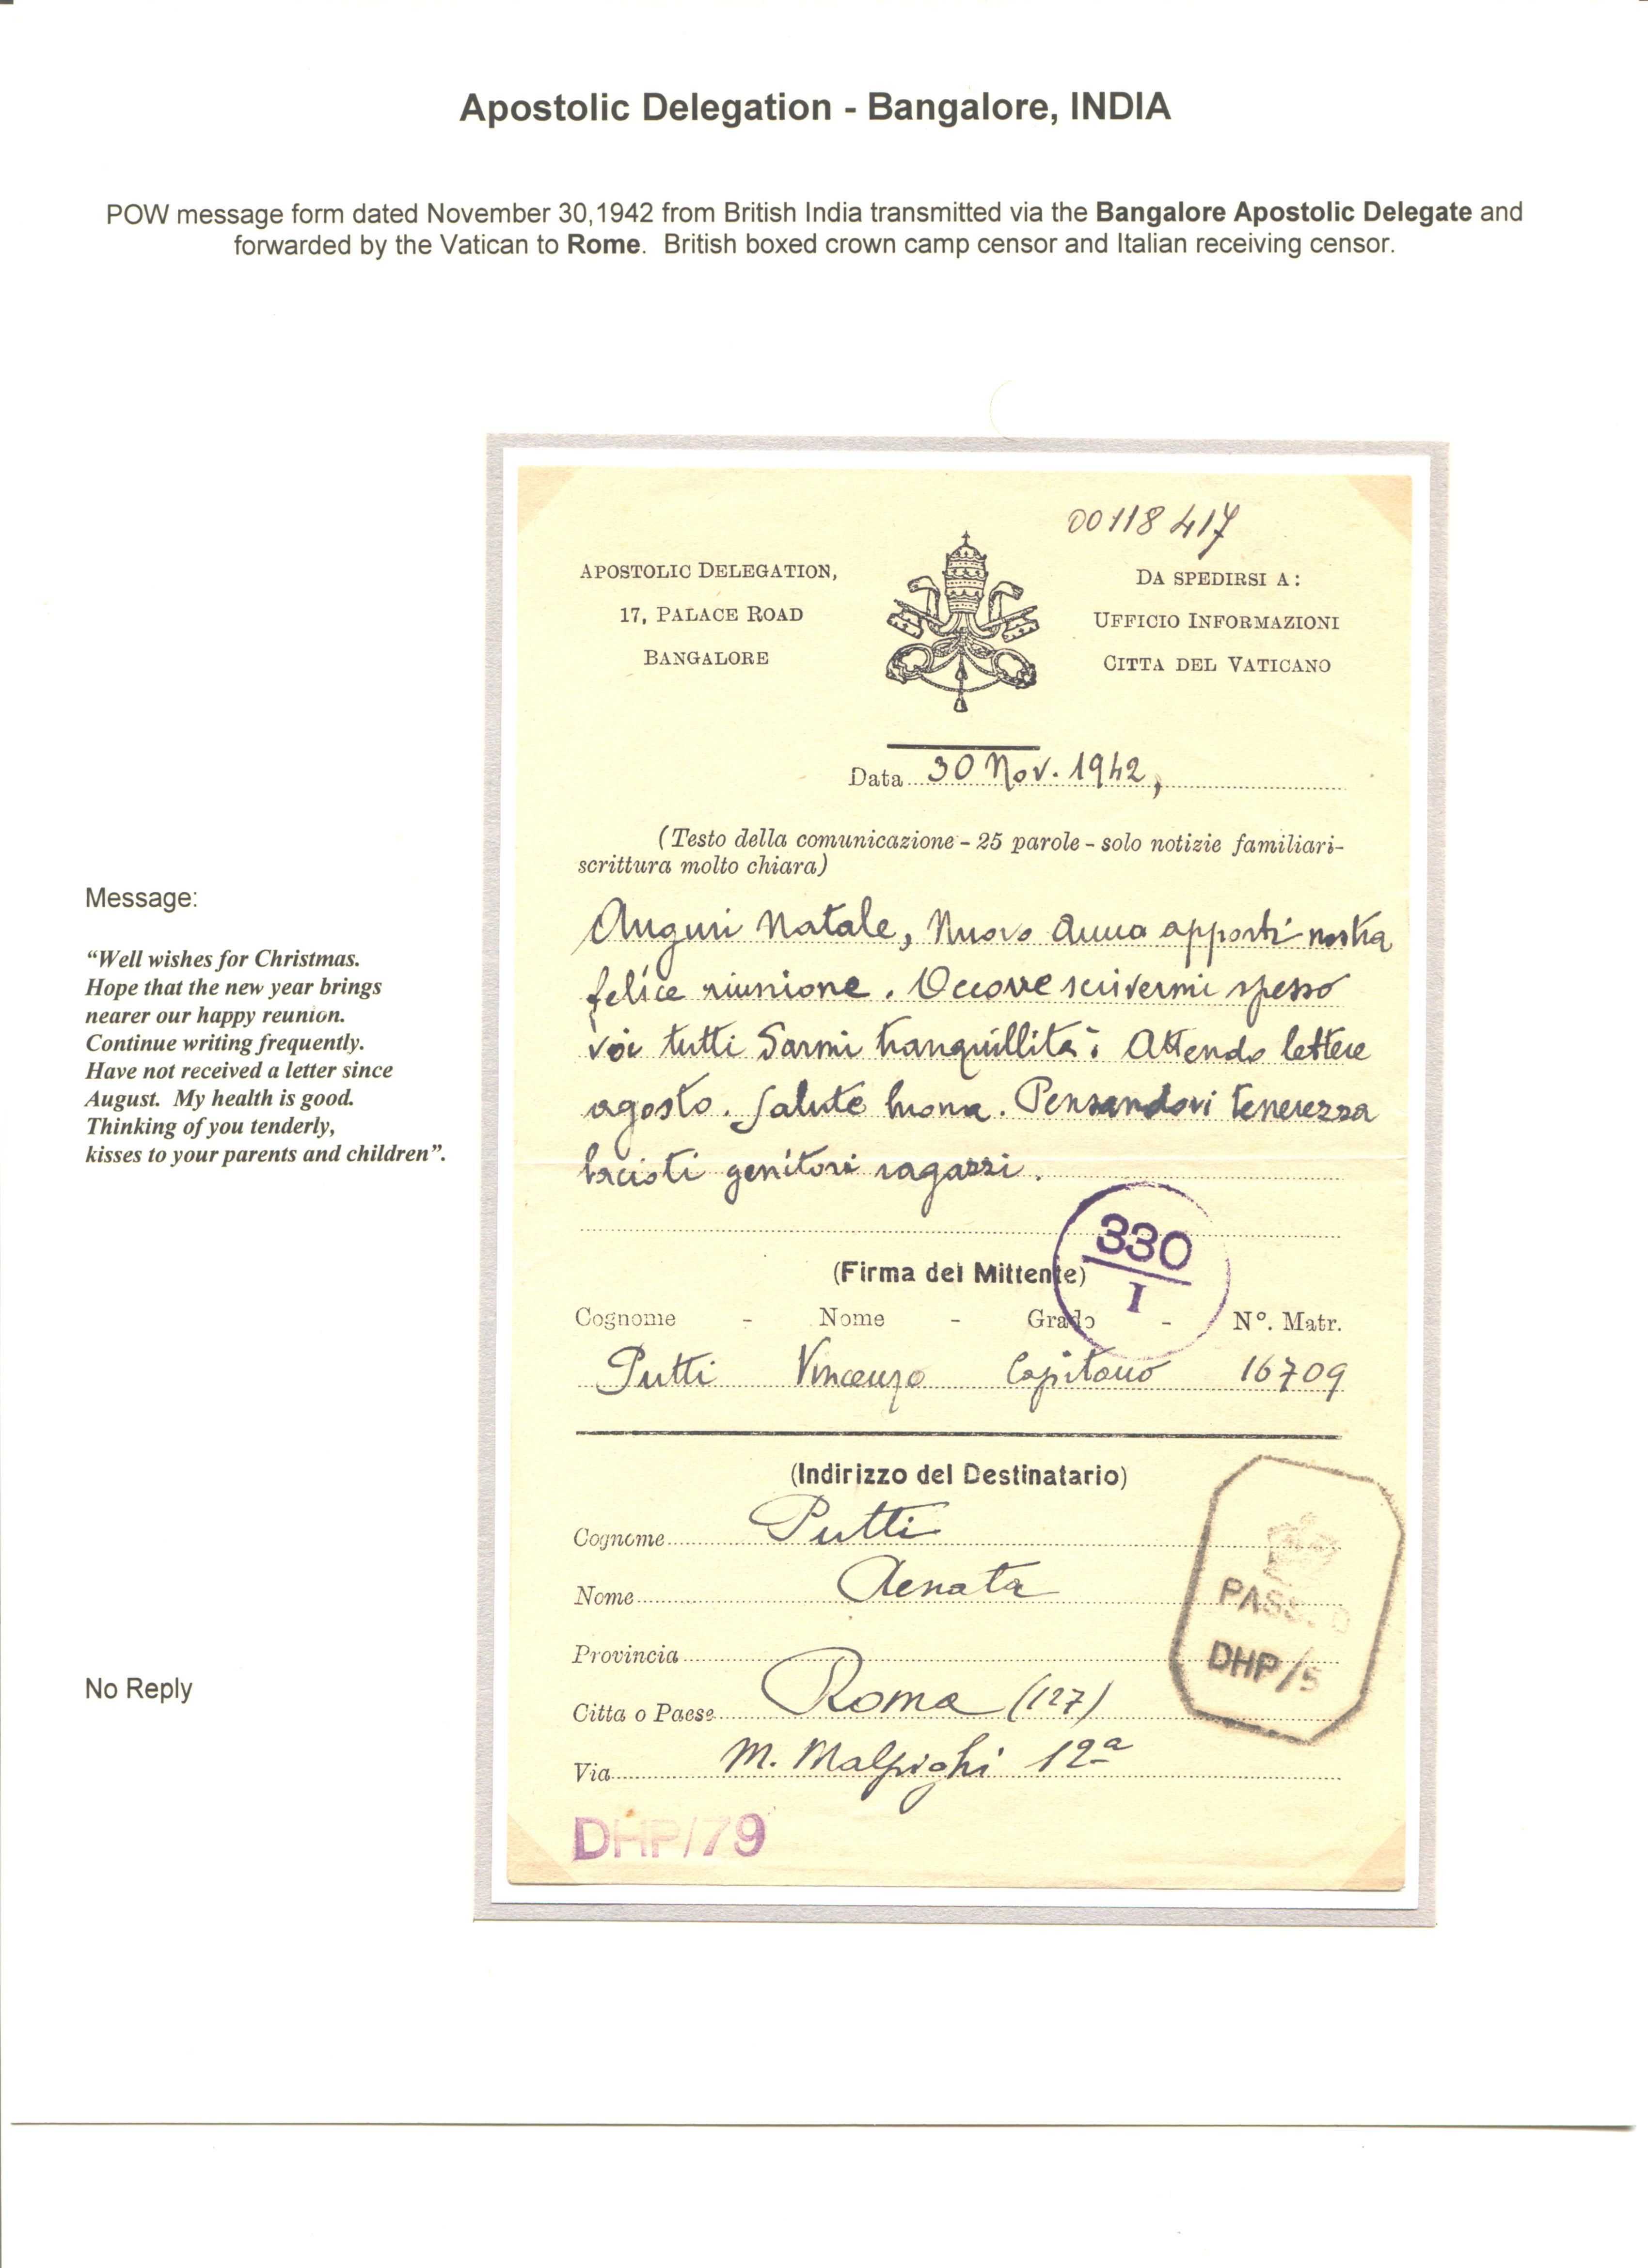 Apostolic Delegation - Bangalore, INDIA
POW message form dated November 30,1942 from British India transmitted via the Bangalore Apostolic Delegate and
forwarded by the Vatican to Rome. British boxed crown camp censor and Italian receiving censor.
00118417
APOSTOLIC DELEGATION,
17, PALACE ROAD
BANGALORE
DA SPEDIRSI A:
UFFICIO INFORMAZIONI
CITTA DEL VATICANO
Data 30 Nov. 1942,
(Testo della comunicazione - 25 parole - solo notizie familiari-
scrittura molto chiara)
Auguri Natale, Nuovo Anno apporti nostra
felice riunione. Occorre scrivermi spesso
voi tutti darmi tranquillità. Attendo lettere
agosto. Salute buona. Pensandovi tenerezza
bacioti genitori ragazzi.
330
I
(Firma del Mittente)
Cognome - Nome - Grado - Nº. Matr.
Putti Vincenzo Capitano 16709
(Indirizzo del Destinatario)
Cognome Putti
Nome Renata
Provincia
Citta o Paese Roma (127)
Via M. Malpighi 12a
PASSED
DHP/5
DHP/79
Message:
“Well wishes for Christmas.
Hope that the new year brings
nearer our happy reunion.
Continue writing frequently.
Have not received a letter since
August. My health is good.
Thinking of you tenderly,
kisses to your parents and children”.
No Reply